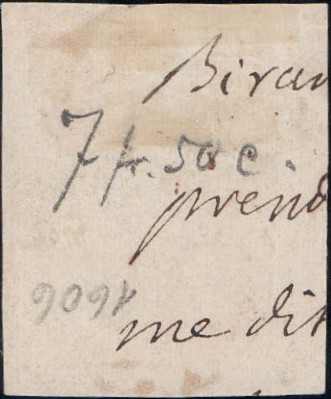 Biran
7 fr. 50 c.
prend
1606
me dit